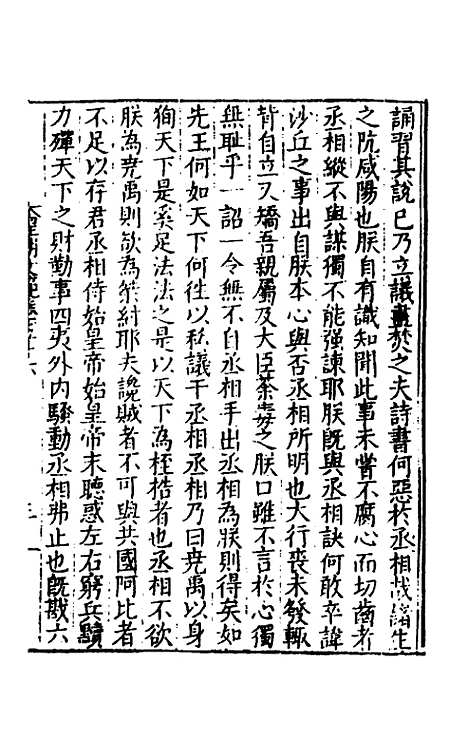 誦習其說已乃立議盡焚之夫詩書何惡於丞相哉諸生
之阬咸陽也朕自有識知聞此事未嘗不腐心而切齒者
丞相縱不與謀獨不能強諫耶朕旣與丞相訣何敢卒諱
沙丘之事出自朕本心與否丞相所明也大行喪未發輙
背自立又矯吾親屬及大臣荼毒之朕口雖不言於心獨
無耻乎一詔一令無不自丞相手出丞相為朕則得矣如
先王何如天下何徃以私議干丞相丞相乃曰堯禹以身
徇天下是奚足法法之是以天下為桎梏者也丞相不欲
朕為堯禹則欲為桀紂耶夫讒賊者不可與共國阿比者
不足以存君丞相侍始皇帝始皇帝末聽惑左右窮兵黷
力殫天下之財勤事四夷外內騷動丞相弗止也旣戡六